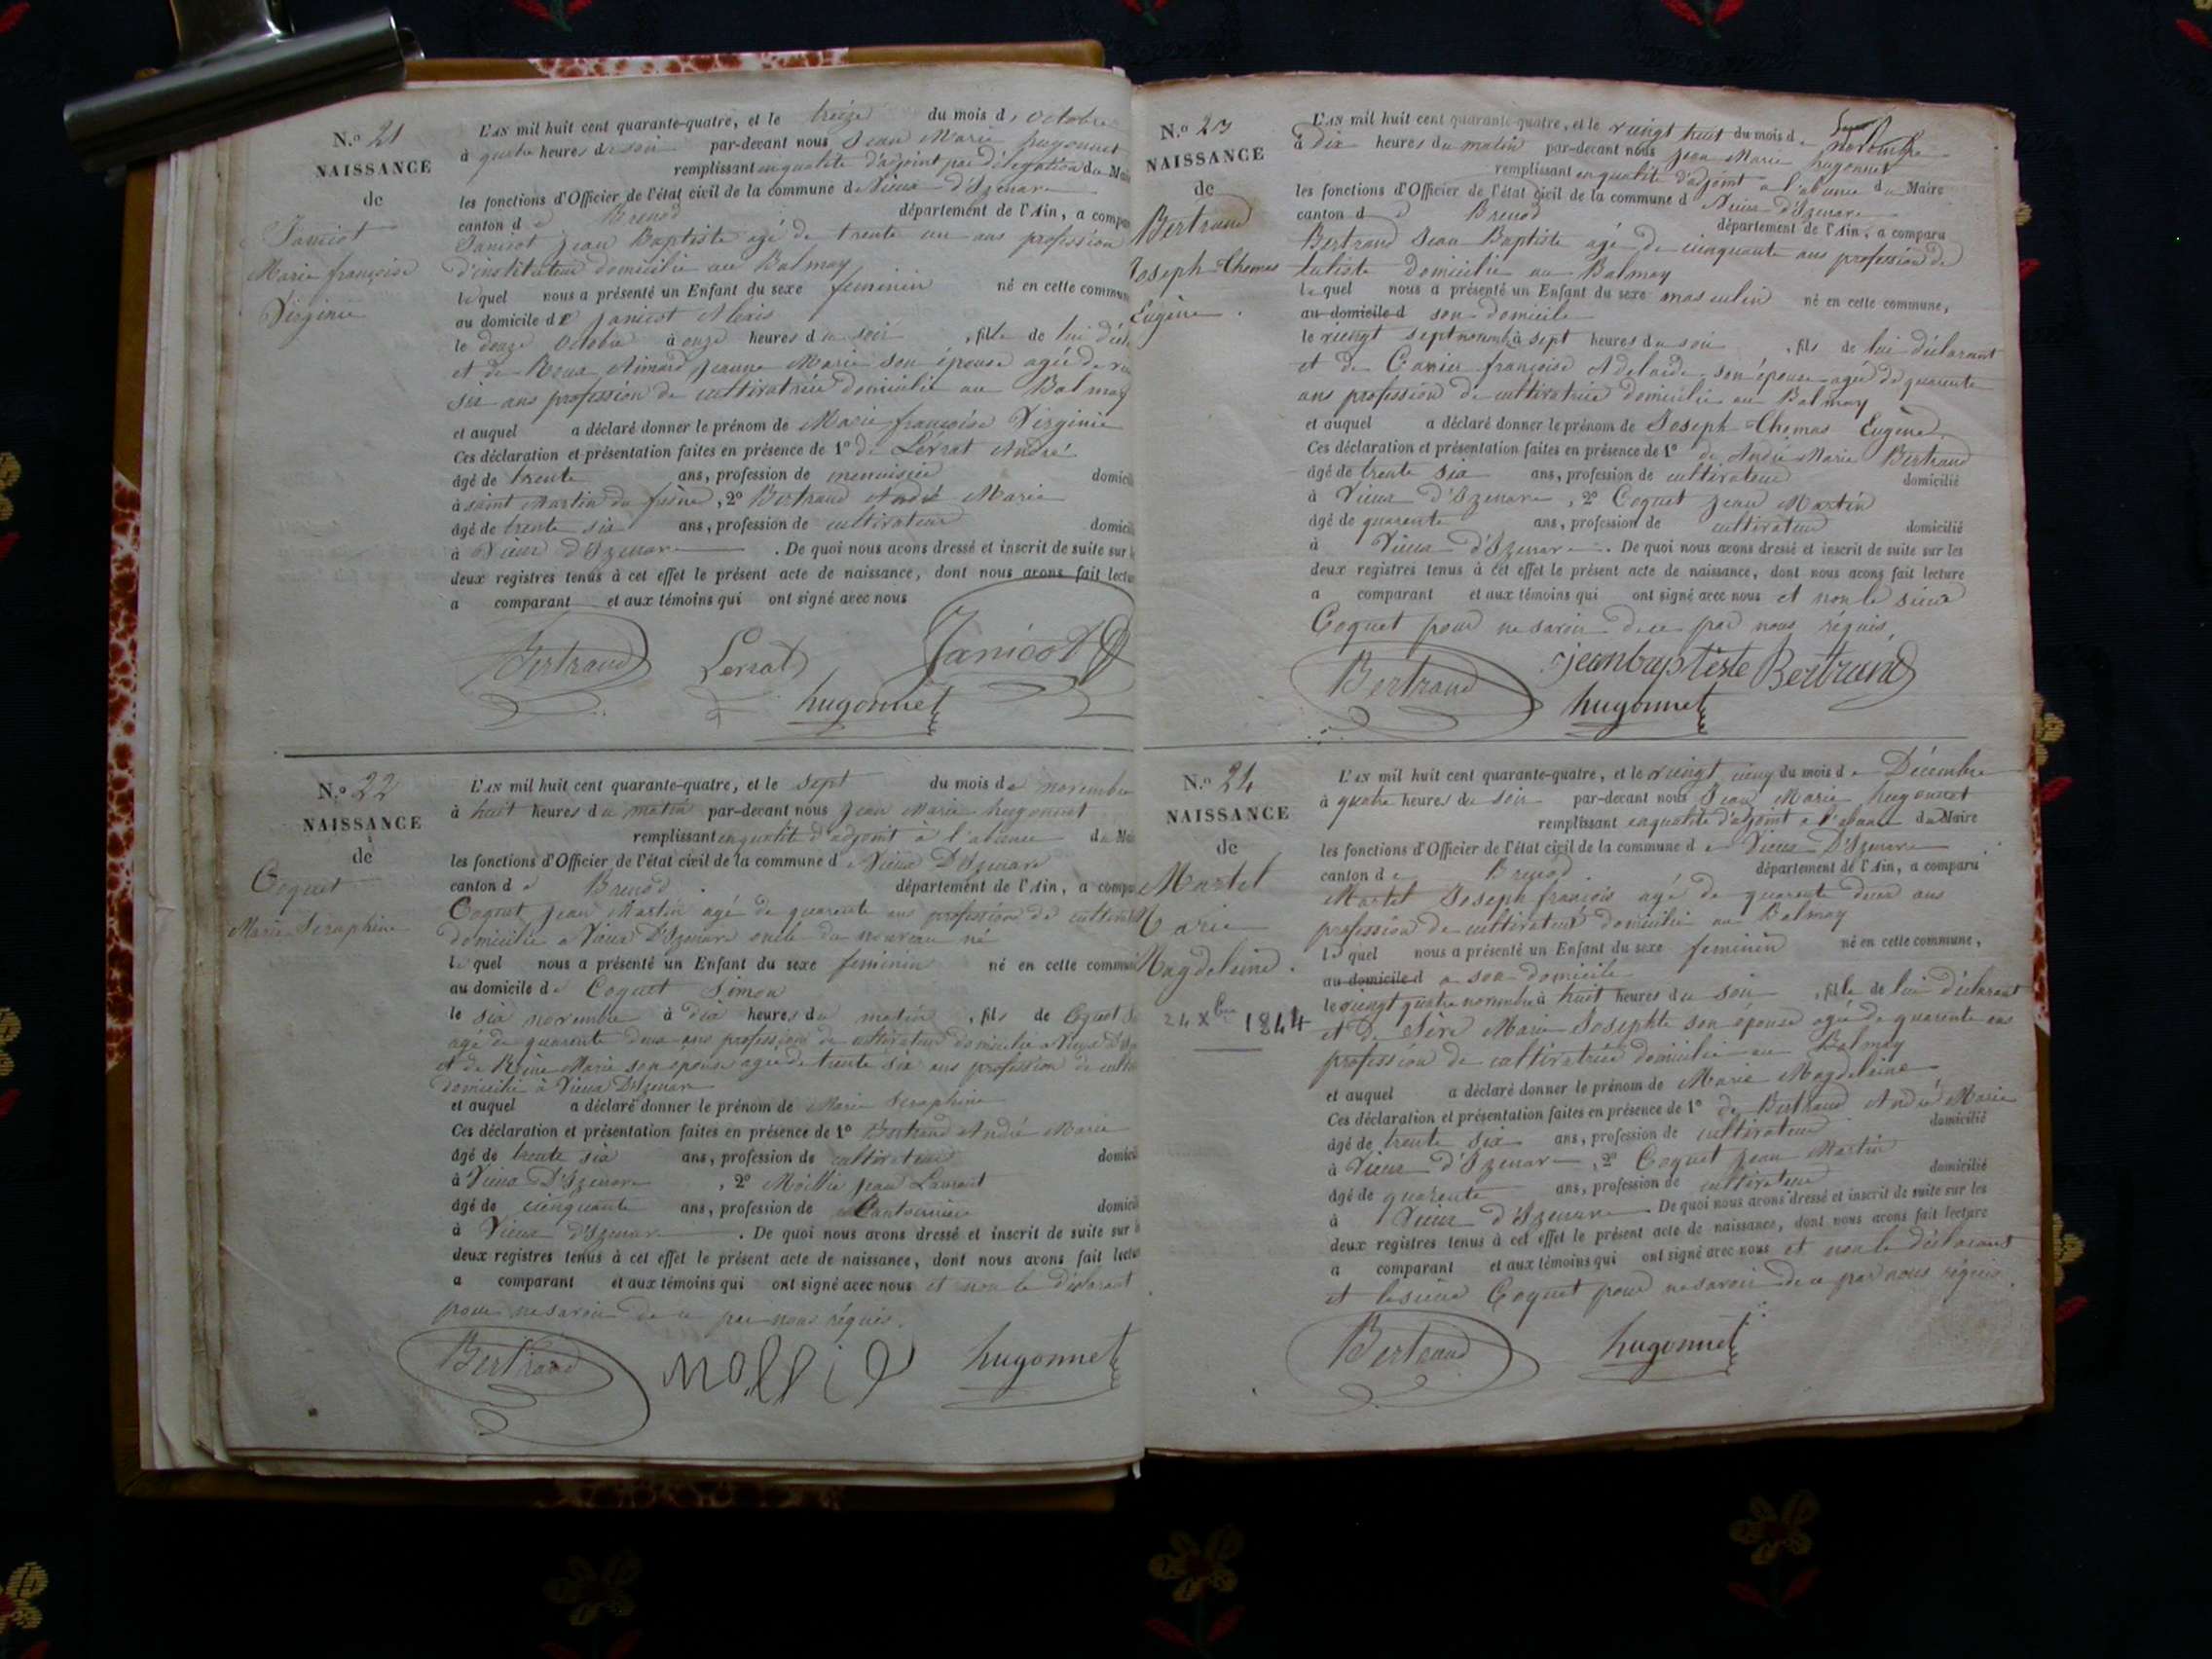 N.o 21
NAISSANCE
de
Janicot
Marie françoise
Virginie
L'AN mil huit cent quarante-quatre, et le treize du mois d'octobre
à quatre heures du soir par-devant nous Jean Marie hugonnet
remplissant en qualité d'adjoint par délégation du Mai
les fonctions d'Officier de l'état civil de la commune de Vieux d'Izenave
canton de Brenod département de l'Ain, a compa
Janicot Jean Baptiste agé de trente un ans profession
d'instituteur domicilié au Balmay
lequel nous a présenté un Enfant du sexe feminin né en cette commune
au domicile de Janicot Alexis
le douze Octobre à onze heures du soir , fille de lui décla
et de Roux Aimard Jeanne Marie son épouse agée de
six ans profession de cultivatrice domicilié au Balmay
et auquel a déclaré donner le prénom de Marie françoise Virginie
Ces déclaration et présentation faites en présence de 1o de Lévrat André
âgé de trente ans, profession de menuisier domicil
à saint Martin du frêne, 2o Bertrand André Marie
âgé de trente six ans, profession de cultivateur domicili
à Vieux d'Izenave . De quoi nous avons dressé et inscrit de suite sur l
deux registres tenus à cet effet le présent acte de naissance, dont nous avons fait lectu
a comparant et aux témoins qui ont signé avec nous
Bertrand Levrat Janicot
hugonnet
N.o 22
NAISSANCE
de
Coquet
Marie Seraphine
L'AN mil huit cent quarante-quatre, et le sept du mois de novembre
à huit heures du matin par-devant nous Jean Marie hugonnet
remplissant en qualité d'adjoint à l'absence du Mai
les fonctions d'Officier de l'état civil de la commune de Vieux D'Izenave
canton de Brenod département de l'Ain, a compa
Coquet Jean Martin agé de quarente ans profession de cultivat
domicilié a Vieux D'Izenave oncle du nouveau né
lequel nous a présenté un Enfant du sexe feminin né en cette commun
au domicile de Coquet Simon
le six novembre à dix heures du matin , fils de Coquet
agé de quarente deux ans profession de cultivateur domicilié a Vieux D'Ize
et de Reine Marie son epouse agée de trente six ans profession de culti
domicilié à Vieux D'Izenave
et auquel a déclaré donner le prénom de Marie Seraphine
Ces déclaration et présentation faites en présence de 1o Bertrand André Marie
âgé de trente six ans, profession de cultivateur domicil
à Vieux D'Izenave , 2o Mollie Jean Laurent
âgé de cinquante ans, profession de Cantonnier domicil
à Vieux D'Izenave . De quoi nous avons dressé et inscrit de suite sur l
deux registres tenus à cet effet le présent acte de naissance, dont nous avons fait lectu
a comparant et aux témoins qui ont signé avec nous et non le déclarant
pour ne savoir de ce par nous réquis.
Bertrand mollie hugonnet
N.o 23
NAISSANCE
de
Bertrand
Joseph Thomas
Eugène.
L'AN mil huit cent quarante-quatre, et le vingt huit du mois de novembre
à dix heures du matin par-devant nous Jean Marie hugonnet
remplissant en qualité d'adjoint a l'absence du Maire
les fonctions d'Officier de l'état civil de la commune d Vieux d'Izenave
canton de Brenod département de l'Ain, a comparu
Bertrand Jean Baptiste agé de cinquante ans profession de
domicilié au Balmay
lequel nous a présenté un Enfant du sexe masculin né en cette commune,
au domicile d son domicile
le vingt sept novembre à sept heures du soir , fils de lui déclarant
et de françoise Adelaide son épouse agée de quarente
ans profession de cultivatrice domicilié au Balmay
et auquel a déclaré donner le prénom de Joseph Thomas Eugène
Ces déclaration et présentation faites en présence de 1o de André Marie Bertrand
âgé de trente six ans, profession de cultivateur domicilié
à Vieux d'Izenave , 2o Coquet Jean Martin
âgé de quarente ans, profession de cultivateur domicilié
à Vieux d'Izenave . De quoi nous avons dressé et inscrit de suite sur les
deux registres tenus à cet effet le présent acte de naissance, dont nous avons fait lecture
a comparant et aux témoins qui ont signé avec nous et non le sieur
Coquet pour ne savoir de ce par nous réquis,
Bertrand jeanbaptiste Bertrand
hugonnet
N.o 24
NAISSANCE
de
Martel
Marie
Magdeleine.
24 Xbre 1844
L'AN mil huit cent quarante-quatre, et le vingt cinq du mois de Décembre
à quatre heures du soir par-devant nous Jean Marie hugonnet
remplissant en qualité d'adjoint a l'absence du Maire
les fonctions d'Officier de l'état civil de la commune de Vieux D'Izenave
canton de Brenod département de l'Ain, a comparu
Martel Joseph françois agé de quarente deux ans
profession de cultivateur domicilié au Balmay
lequel nous a présenté un Enfant du sexe feminin né en cette commune,
au domicile d a son domicile
le vingt quatre novembre à huit heures du soir , fille de lui déclarant
et de Sève Marie Josephte son epouse agée de quarente ans
profession de cultivatrice domicilié au Balmay
et auquel a déclaré donner le prénom de Marie Magdeleine
Ces déclaration et présentation faites en présence de 1o de Bertrand André Marie
âgé de trente six ans, profession de cultivateur domicilié
à Vieux d'Izenave , 2o Coquet Jean Martin
âgé de quarente ans, profession de cultivateur domicilié
à Vieux d'Izenave De quoi nous avons dressé et inscrit de suite sur les
deux registres tenus à cet effet le présent acte de naissance, dont nous avons fait lecture
a comparant et aux témoins qui ont signé avec nous et non le déclarant
et le sieur Coquet pour ne savoir de ce par nous réquis.
Bertrand hugonnet